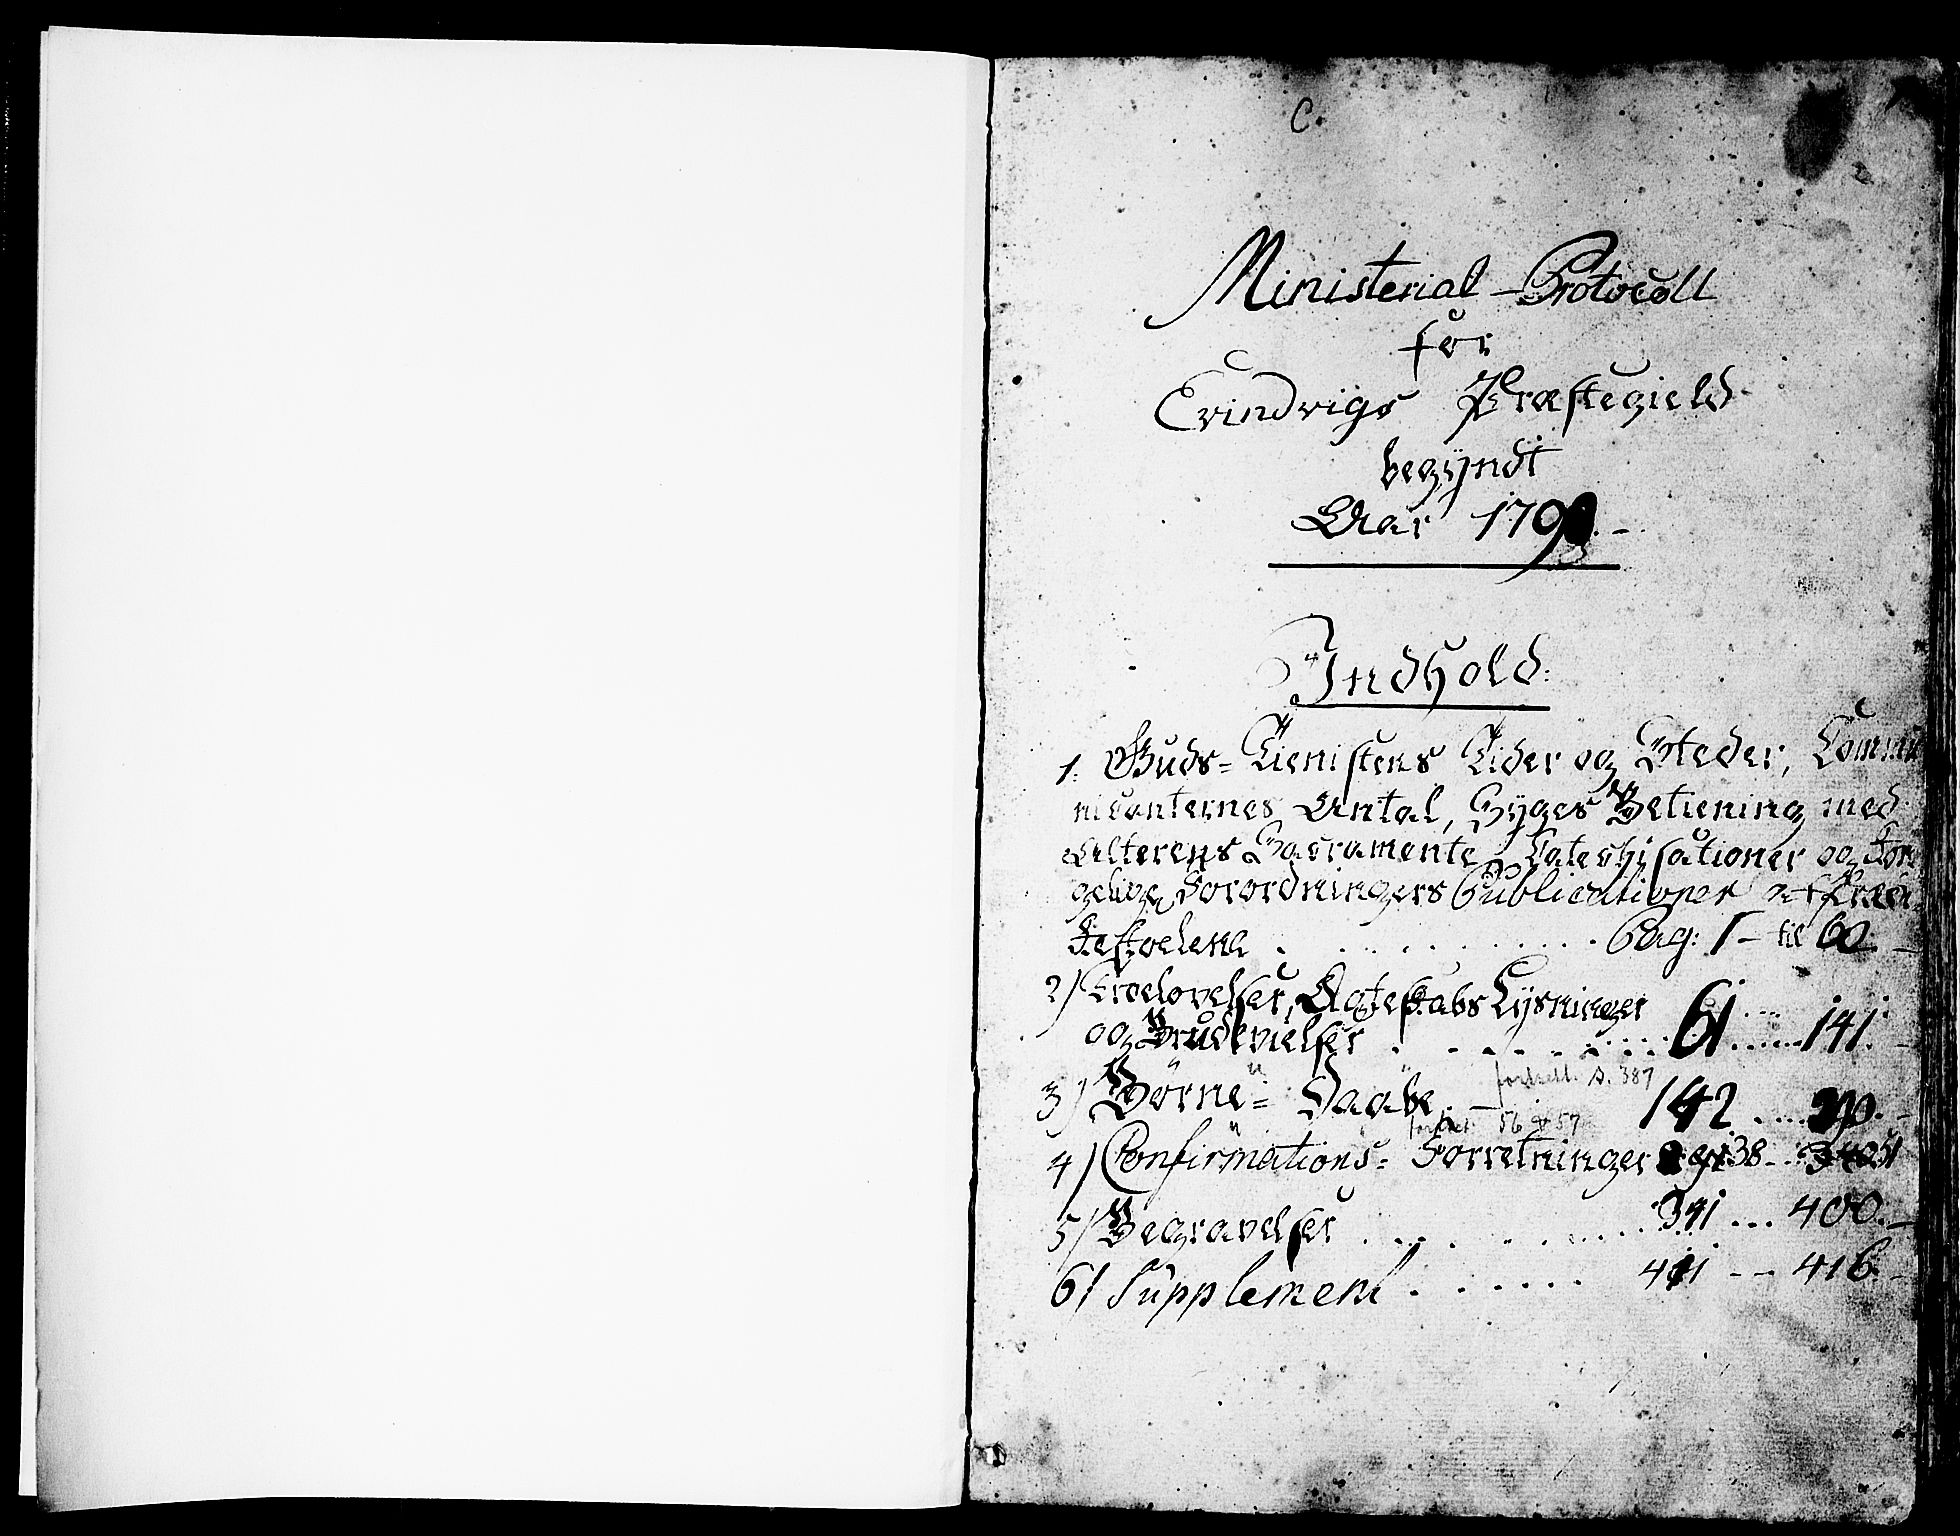 C.
Ministerial-Protocoll
for
Evindvigs Præstegield
begÿndt
Aar 179
Indhold:
1. Guds-Tienistens Tider og Steder, Commu
nicanternes Antal, Syges Betiening med
Alterens Sacramente, Catechisationer og Kon
gelige Forordningers Publicationer af Præ
kestoelene . . . . . . . . . . Pag: 1 - til 60. -
2) Troelovelser, Ægteskabs Lysninger
og Brudevielser . . . . . . . . . 61 ...... 141. -
fortsett. s. 387
3) Børne- Daab. - 142 .....
fortset 56 & 57
4) Confirmations- Forretninger 38 - 51
5) Begravelser . . . . . . . . . 341 ... 400. -
6) Supplement . . . . . . 411 - - 416. -